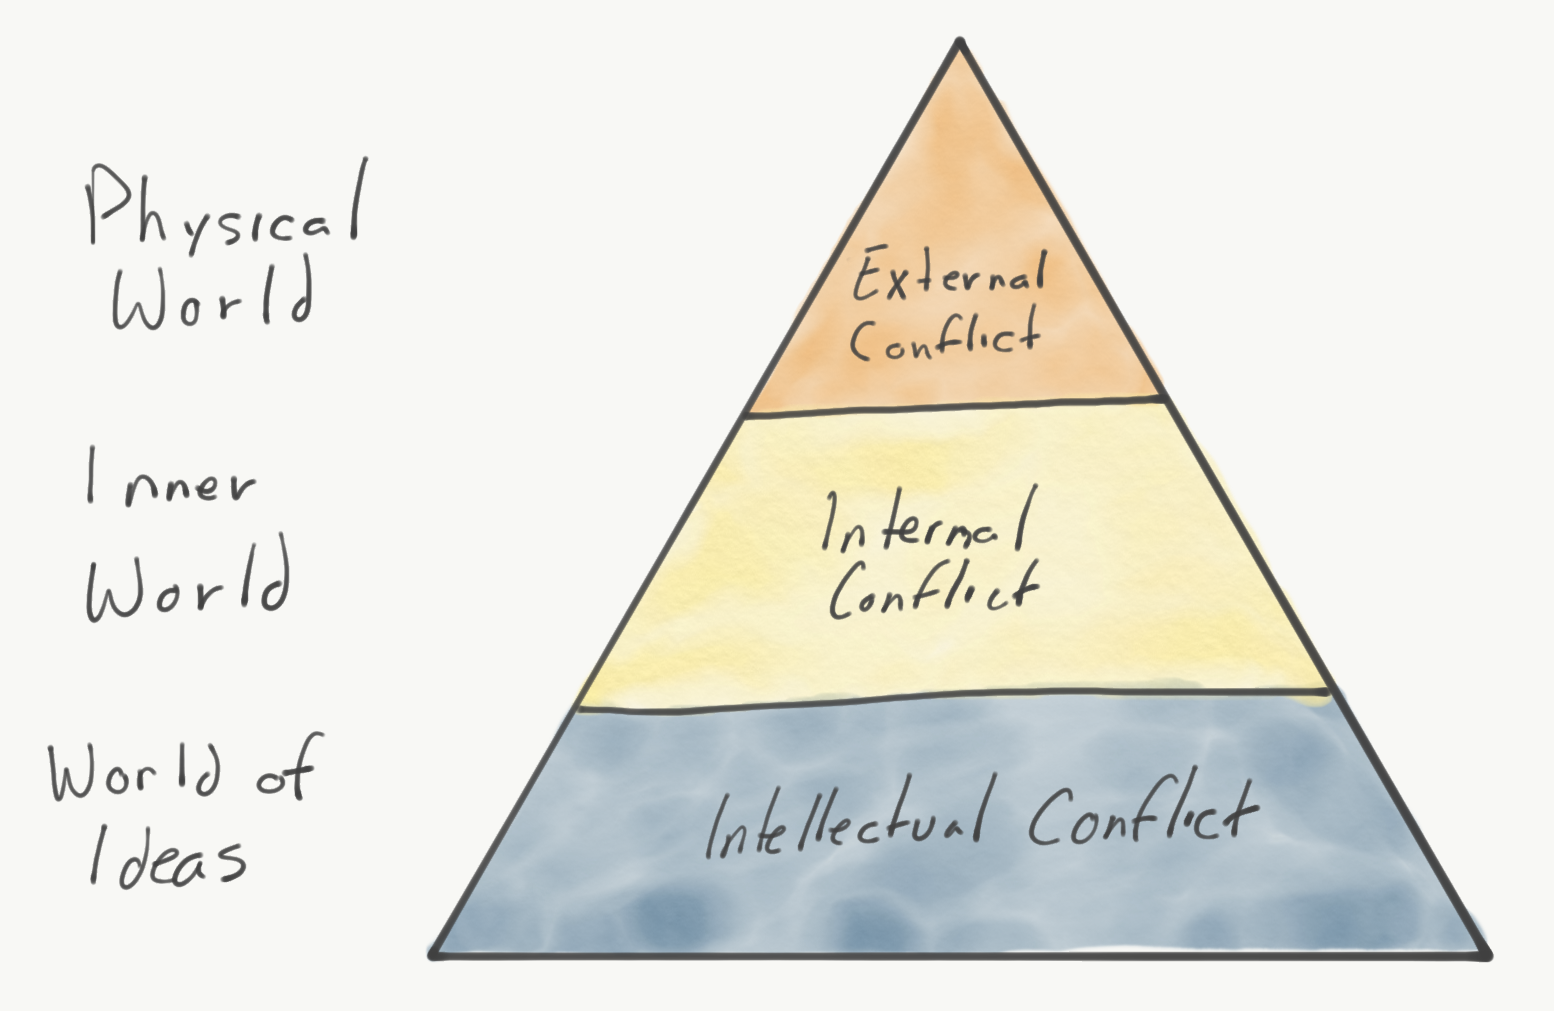 Physical
World
External
Conflict
Inner
World
Internal
Conflict
World of
Ideas
Intellectual Conflict